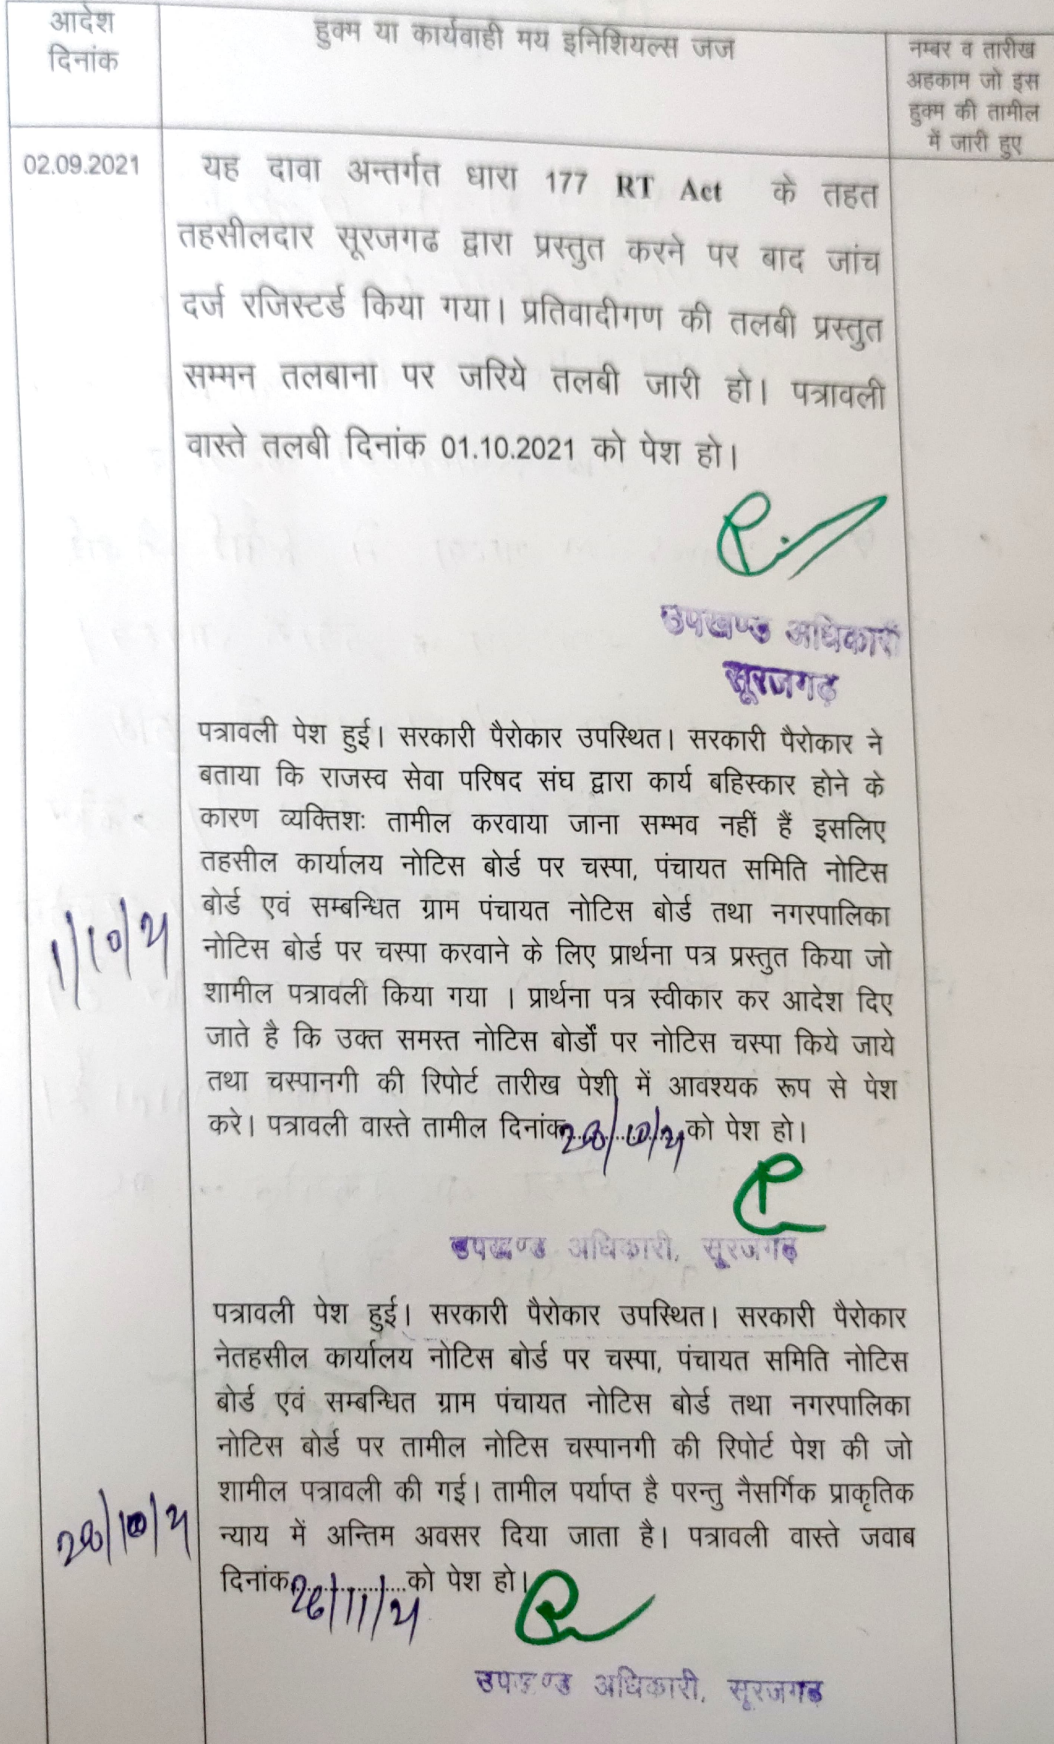 आदेश
दिनांक
हुक्म या कार्यवाही मय इनिशियल्स जज
नम्बर व तारीख
अहकाम जो इस
हुक्म की तामील
में जारी हुए
02.09.2021
यह दावा अन्तर्गत धारा 177 RT Act के तहत
तहसीलदार सूरजगढ द्वारा प्रस्तुत करने पर बाद जांच
दर्ज रजिस्टर्ड किया गया। प्रतिवादीगण की तलबी प्रस्तुत
सम्मन तलबाना पर जरिये तलबी जारी हो। पत्रावली
वास्ते तलबी दिनांक 01.10.2021 को पेश हो।
उपखण्ड अधिकारी
सूरजगढ़
1/10/21
पत्रावली पेश हुई। सरकारी पैरोकार उपस्थित। सरकारी पैरोकार ने
बताया कि राजस्व सेवा परिषद संघ द्वारा कार्य बहिस्कार होने के
कारण व्यक्तिशः तामील करवाया जाना सम्भव नहीं हैं इसलिए
तहसील कार्यालय नोटिस बोर्ड पर चस्पा, पंचायत समिति नोटिस
बोर्ड एवं सम्बन्धित ग्राम पंचायत नोटिस बोर्ड तथा नगरपालिका
नोटिस बोर्ड पर चस्पा करवाने के लिए प्रार्थना पत्र प्रस्तुत किया जो
शामील पत्रावली किया गया । प्रार्थना पत्र स्वीकार कर आदेश दिए
जाते है कि उक्त समस्त नोटिस बोर्डों पर नोटिस चस्पा किये जाये
तथा चस्पानगी की रिपोर्ट तारीख पेशी में आवश्यक रूप से पेश
करे। पत्रावली वास्ते तामील दिनांक 28/10/21 को पेश हो।
उपखण्ड अधिकारी, सूरजगढ़
28/10/21
पत्रावली पेश हुई। सरकारी पैरोकार उपस्थित। सरकारी पैरोकार
नेतहसील कार्यालय नोटिस बोर्ड पर चस्पा, पंचायत समिति नोटिस
बोर्ड एवं सम्बन्धित ग्राम पंचायत नोटिस बोर्ड तथा नगरपालिका
नोटिस बोर्ड पर तामील नोटिस चस्पानगी की रिपोर्ट पेश की जो
शामील पत्रावली की गई। तामील पर्याप्त है परन्तु नैसर्गिक प्राकृतिक
न्याय में अन्तिम अवसर दिया जाता है। पत्रावली वास्ते जवाब
दिनांक 26/11/21 को पेश हो।
उपखण्ड अधिकारी, सूरजगढ़